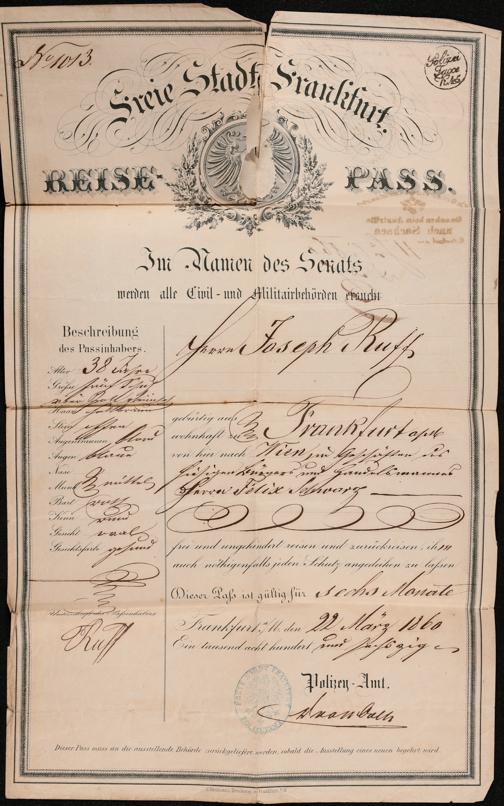 No 1013.
Polizei
Taxe
Freie Stadt Frankfurt.
REISE-PASS.
nach Sachsen
Im Namen des Senats
werden alle Civil- und Militairbehörden ersucht
Herrn Joseph Ruff
Beschreibung
des Passinhabers.
Alter 38 Jahre
Größe fünf Schuh
Haare hellbraun
Stirn offen
Augenbraunen blond
Augen blaue
Nase
Mund mittel
Bart roth
Kinn rund
Gesicht oval
Gesichtsfarbe gesund
Ruff
gebürtig aus
wohnhaft zu Frankfurt a/M
von hier nach Wien in Geschäften des
hiesigen Bürgers und Handelsmannes
Herrn Felix Schwarz
frei und ungehindert reisen und zurückreisen, dem
auch nöthigenfalls jeden Schutz angedeihen zu lassen
Dieser Paß ist gültig für sechs Monate
Frankfurt a/M. den 22 März 1860
Ein tausend acht hundert und sechszig
Polizey-Amt.
Dieser Pass muss an die ausstellende Behörde zurückgeliefert werden, sobald die Ausstellung eines neuen begehrt wird.